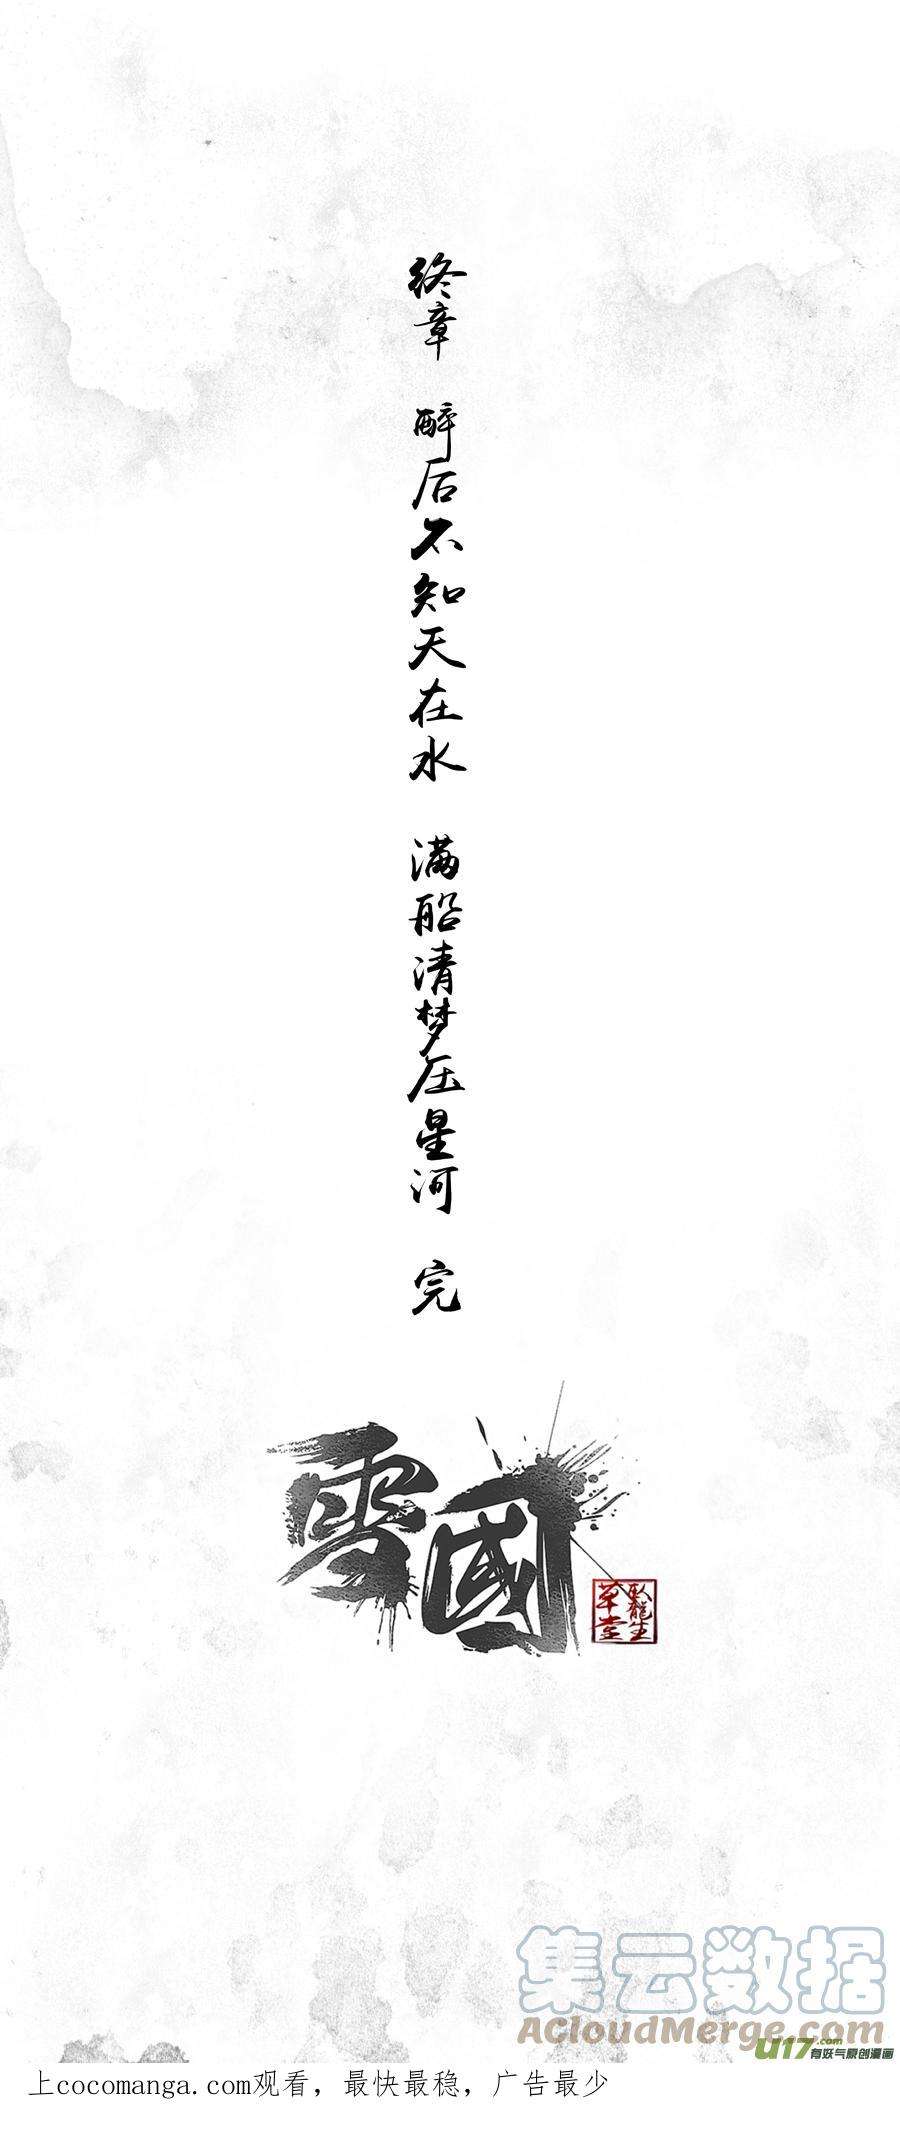 终章 醉后不知天在水 满船清梦压星河 完
雪國
臥龍生
草堂
集云数据
ACloudMerge.com
U17.com
有妖气原创漫画
上cocomanga.com观看，最快最稳，广告最少